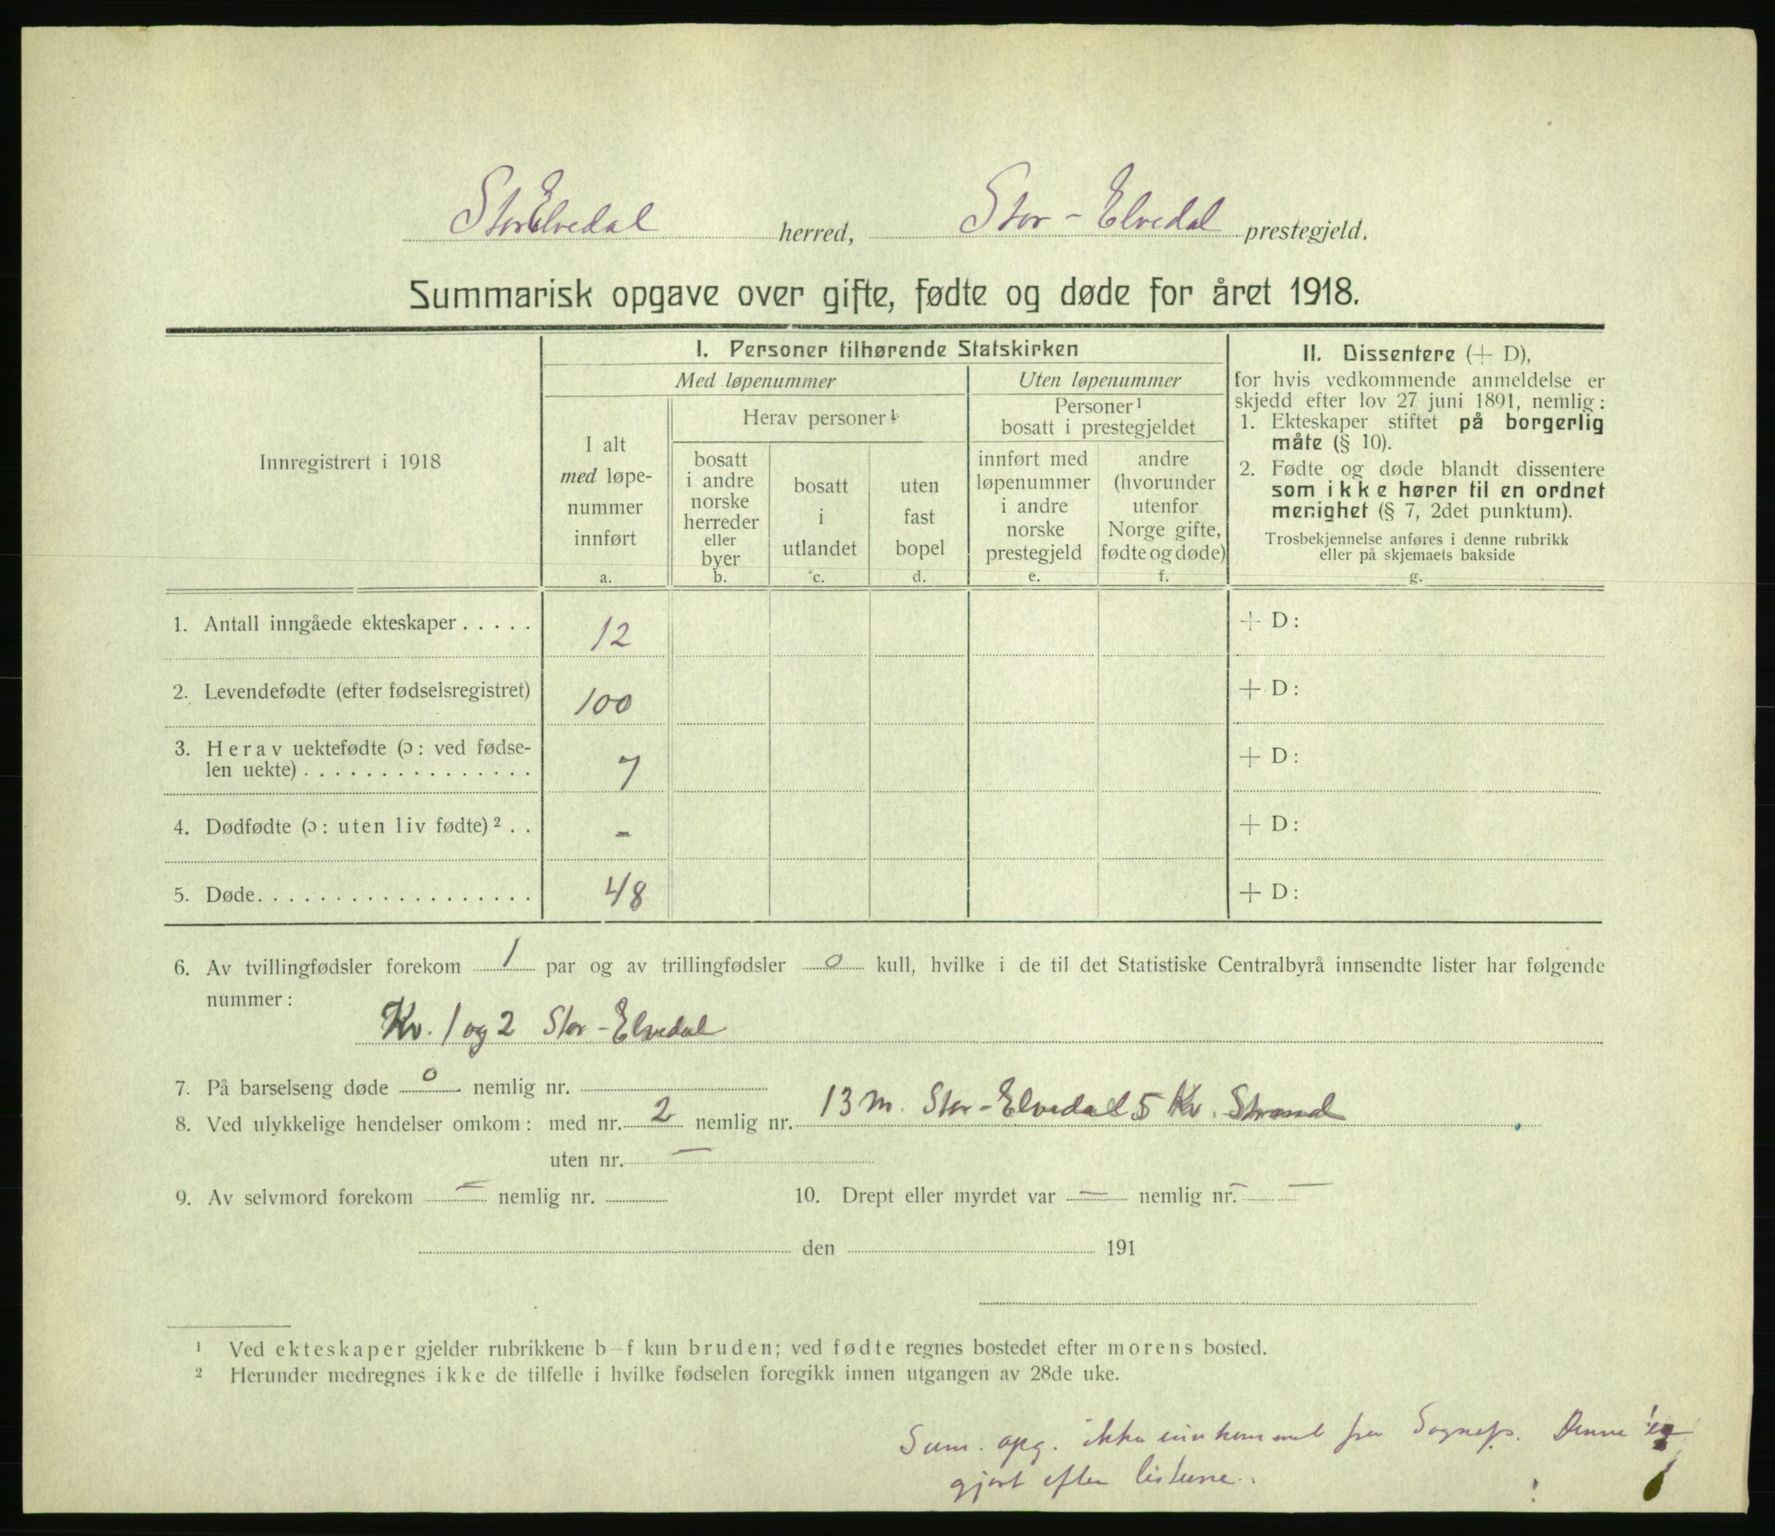 StorElvedal herred, Stor-Elvedal prestegjeld.
Summarisk opgave over gifte, fødte og døde for året 1918.
Innregistrert i 1918
I. Personer tilhørende Statskirken
Med løpenummer
Uten løpenummer
I alt
med løpe-
nummer
innført
a.
Herav personer¹
bosatt
i andre
norske
herreder
eller
byer
b.
bosatt
i
utlandet
c.
uten
fast
bopel
d.
Personer¹
bosatt i prestegjeldet
innført med
løpenummer
i andre
norske
prestegjeld
e.
andre
(hvorunder
utenfor
Norge gifte,
fødte og døde)
f.
II. Dissentere (+ D),
for hvis vedkommende anmeldelse er
skjedd efter lov 27 juni 1891, nemlig:
1. Ekteskaper stiftet på borgerlig
måte (§ 10).
2. Fødte og døde blandt dissentere
som ikke hører til en ordnet
menighet (§ 7, 2det punktum).
Trosbekjennelse anføres i denne rubrikk
eller på skjemaets bakside
g.
1. Antall inngåede ekteskaper..... 12 + D:
2. Levendefødte (efter fødselsregistret) 100 + D:
3. Herav uektefødte (ɔ: ved fødse-
len uekte)............... 7 + D:
4. Dødfødte (ɔ: uten liv fødte)².. - + D:
5. Døde.................. 48 + D:
6. Av tvillingfødsler forekom 1 par og av trillingfødsler 0 kull, hvilke i de til det Statistiske Centralbyrå innsendte lister har følgende
nummer:
Kv. 1 og 2 Stor-Elvedal
7. På barselseng døde 0 nemlig nr.
8. Ved ulykkelige hendelser omkom: med nr. 2 nemlig nr. 13 m. Stor-Elvedal 5 Kv. Strand
uten nr. —
9. Av selvmord forekom — nemlig nr. 10. Drept eller myrdet var — nemlig nr. —
den 191
¹ Ved ekteskaper gjelder rubrikkene b–f kun bruden; ved fødte regnes bostedet efter morens bosted.
² Herunder medregnes ikke de tilfelle i hvilke fødselen foregikk innen utgangen av 28de uke.
Sum. opg. ikke innkommet fra Sognepr. Denne er
gjort efter listene.